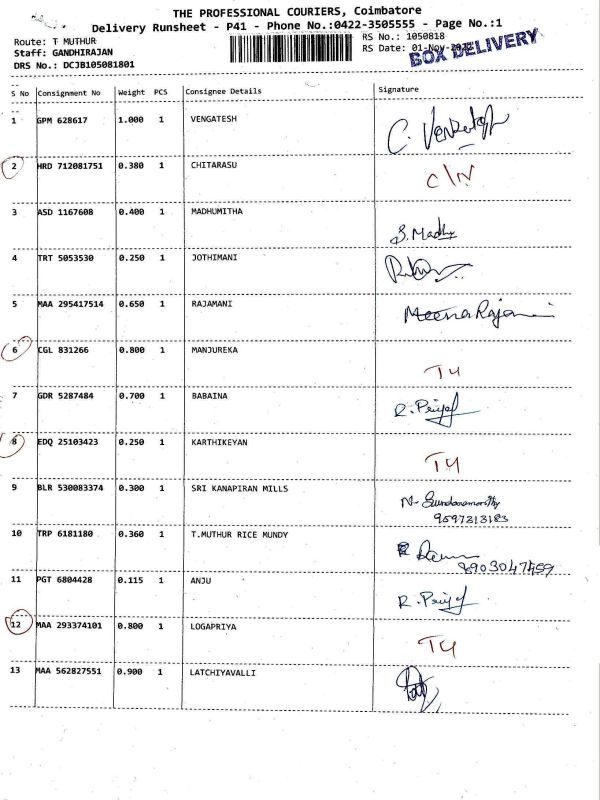 THE PROFESSIONAL COURIERS, Coimbatore
Delivery Runsheet - P41 - Phone No.:0422-3505555 - Page No.:1
Route: T MUTHUR
RS No.: 1050818
Staff: GANDHIRAJAN
RS Date: 01-Nov-
BOX DELIVERY
DRS No.: DCJB105081801
S No Consignment No Weight PCS Consignee Details Signature
1 GPM 628617 1.000 1 VENGATESH C. Venkatesh
2 HRD 712081751 0.380 1 CHITARASU C/N
3 ASD 1167608 0.400 1 MADHUMITHA S. Madhu
4 TRT 5053530 0.250 1 JOTHIMANI
5 MAA 295417514 0.650 1 RAJAMANI Meena Rajamani
6 CGL 831266 0.800 1 MANJUREKA T4
7 GDR 5287484 0.700 1 BABAINA R. Priya
8 EDQ 25103423 0.250 1 KARTHIKEYAN T4
9 BLR 530083374 0.300 1 SRI KANAPIRAN MILLS N. Sundaramoorthy
9597313183
10 TRP 6181180 0.360 1 T.MUTHUR RICE MUNDY
8903047459
11 PGT 6804428 0.115 1 ANJU R. Priya
12 MAA 293374101 0.800 1 LOGAPRIYA T4
13 MAA 562827551 0.900 1 LATCHIYAVALLI